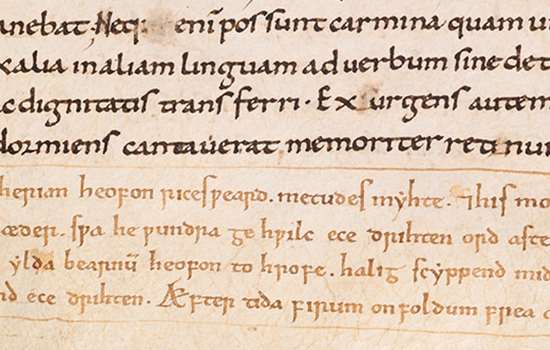 anebat. Neq; enī possunt carmina quam u
xalia in aliam linguam ad verbum sine det
ac dignitatis transferri. Exurgens autem
dormiens cantaverat memoriter retinui
herian heofon ricesƿeard. metudes myhte. ⁊his mo
æder. sƿa he ƿundra gehƿilc ece drihten ord aste
ylda bearnū heofon to hrofe. halig scyppend mid
nd ece drihten. Æfter tida firum on foldum frea